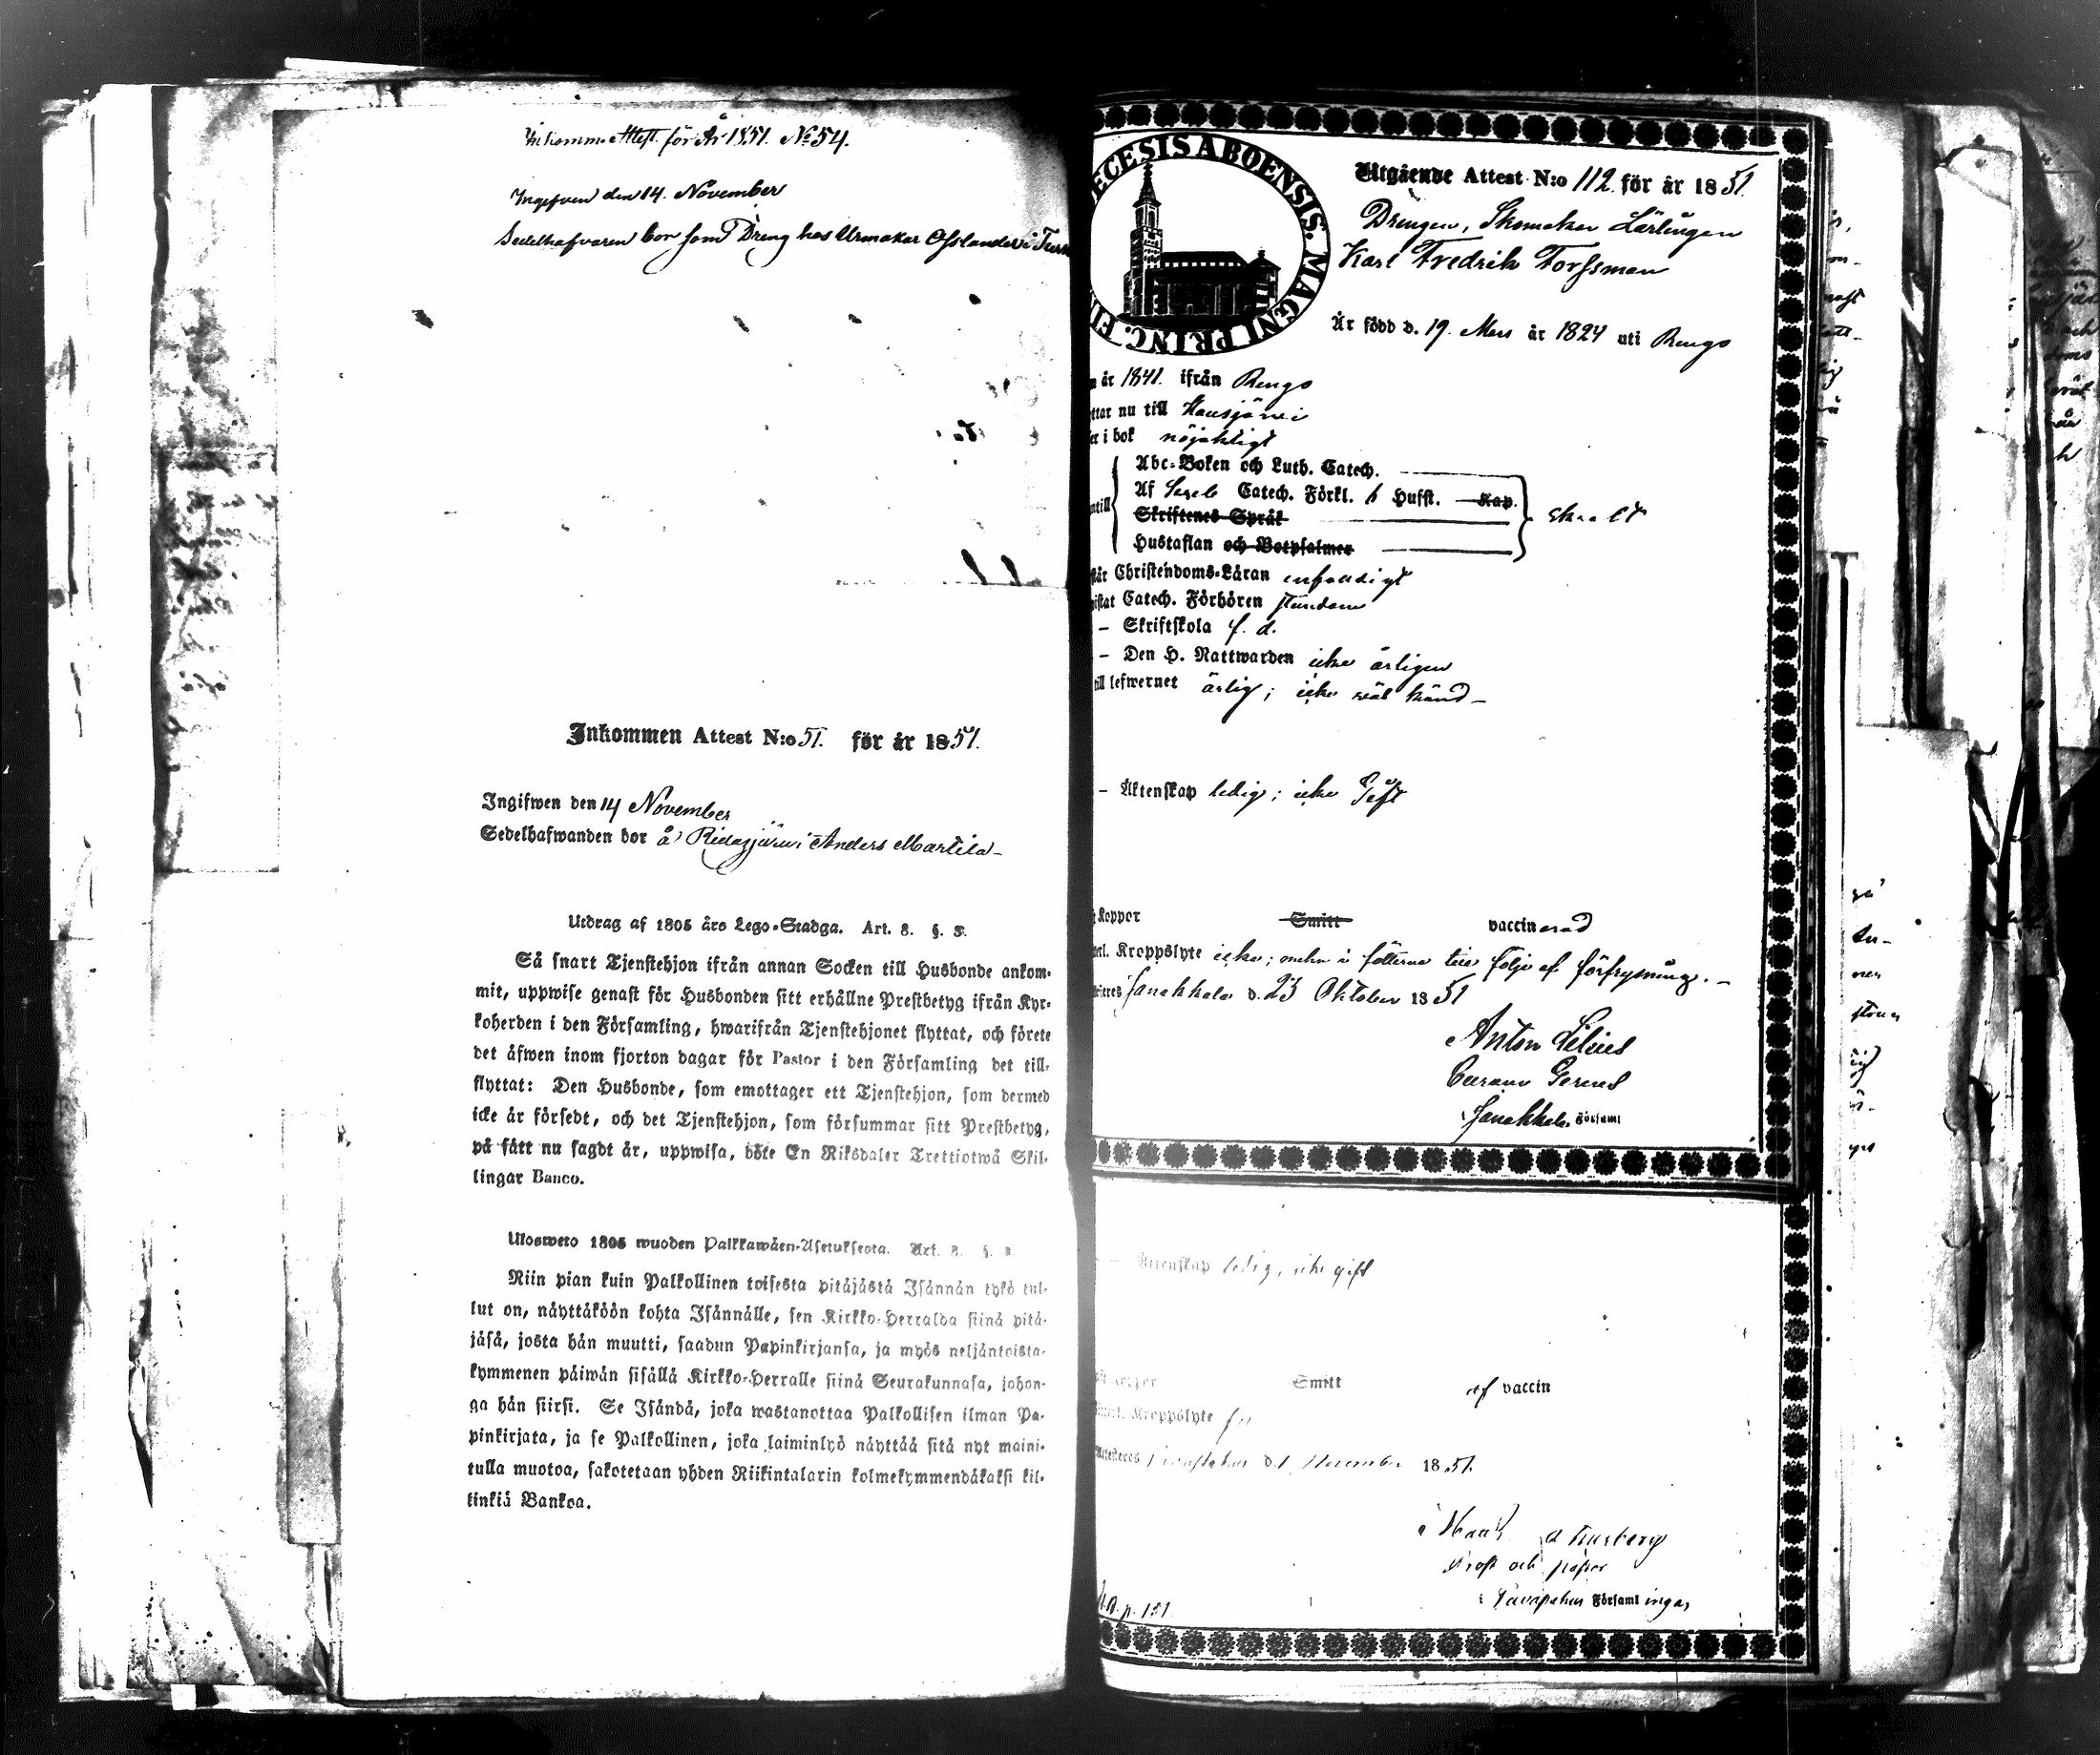 Inkomm. Attest för År 1851. No 54.
Ingifven den 14. November
Sedelhafvaren bor som Dreng hos Urmakar
Inkommen Attest N:o 51. för år 1851.
Ingifwen den 14 November
Sedelhafwanden bor å Ridasjärvi Anders Martila
Utdrag af 1805 års Lego-Stadga. Art. 8. §. 3.
Så snart Tjenstehjon ifrån annan Socken till Husbonde ankom-
mit, uppwise genast för Husbonden sitt erhållne Prestbetyg ifrån Kyr-
koherden i den Församling, hwarifrån Tjenstehjonet flyttat, och förete
det äfwen inom fjorton dagar för Pastor i den Församling det till-
flyttat: Den Husbonde, som emottager ett Tjenstehjon, som dermed
icke är försedt, och det Tjenstehjon, som försummar sitt Prestbetyg,
på sätt nu sagdt är, uppwisa, böte En Riksdaler Trettiotwå Skil-
lingar Banco.
Ulosweto 1805 wuoden Palkkawäen-Asetuksesta. Art. 8. §. 3.
Niin pian kuin Palkollinen toisesta pitäjästä Isännän tykö tul-
lut on, näyttäköön kohta Isännälle, sen Kirkko-Herralda siinä pitä-
jäsä, josta hän muutti, saadun Papinkirjansa, ja myös neljäntoista-
kymmenen päiwän sisällä Kirkko-Herralle siinä Seurakunnasa, johon-
ga hän siirsi. Se Isändä, joka wastanottaa Palkollisen ilman Pa-
pinkirjata, ja se Palkollinen, joka laiminlyö näyttää sitä nyt maini-
tulla muotoa, sakotetaan yhden Riikintalarin kolmekymmendäkaksi kil-
linkiä Bankoa.
ECESIS ABOENSIS. MAGNI PRINC. FI
Utgående Attest N:o 112. för år 1851.
Drengen, Skomakar Lärlingen
Karl Fredrik Forssman
Är född d. 19. Mars år 1824 uti Rengo
år 1841. ifrån Rengo
ttar nu till Hausjärvi
i bok nöjaktigt
Abc-Boken och Luth. Catech.
Af Catech. Förkl. 6 Hufst. Kap.
Skriftenes Språk
Hustaflan och Botpsalmer
Christendoms-Läran enfaldigt
Catech. Förhören stundom
– Skriftskola f. d.
– Den H. Nattwarden icke årligen
till lefwernet ärlig; icke wäl känd –
– Äktenskap ledig; icke Gift
koppor Smitt vaccinerad
Kroppslyte icke; i fötterna till följe af förfrysning. –
Janakkala d. 23 Oktober 1851
Anton Lilius
Janakkala Församl
– Äktenskap ledig, icke gift
Smitt af vaccin
Kroppslyte
d. 1 November 1851.
Prost och pastor
i Tavastehus Församlingar
p. 151